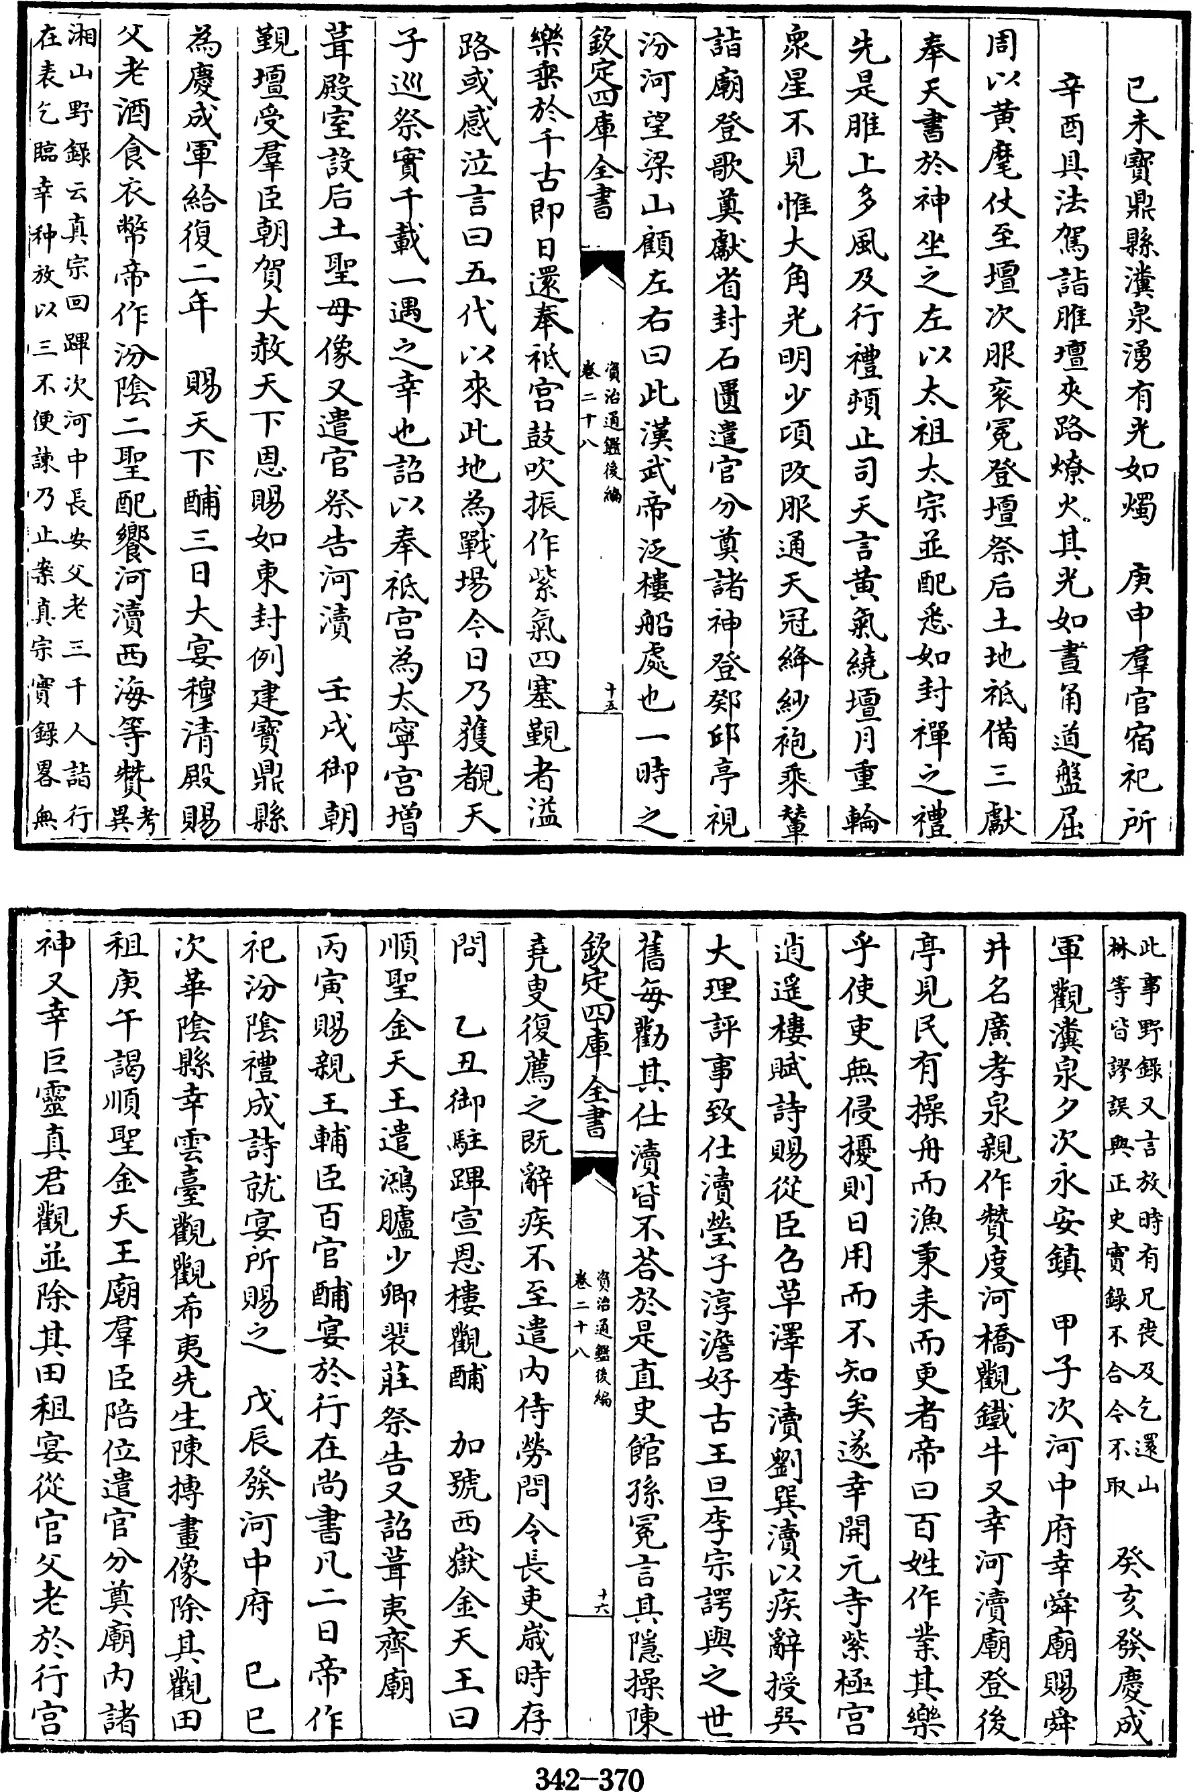 已未寳鼎縣瀵泉湧有光如燭　庚申羣官宿祀所
辛酉具法駕詣脽壇夾路燎火其光如晝甬道盤屈
周以黄麾仗至壇次服衮冕登壇祭后土地祗備三獻
奉天書於神坐之左以太祖太宗並配悉如封禪之禮
先是脽上多風及行禮頓止司天言黄氣繞壇月重輪
衆星不見惟大角光明少頃改服通天冠絳紗袍乘輦
詣廟登歌奠獻省封石匱遣官分奠諸神登鄈邱亭視
汾河望梁山顧左右曰此漢武帝泛樓船處也一時之
欽定四庫全書
資治通鑑後編
卷二十八
十五
樂垂於千古即日還奉祗宫鼓吹振作紫氣四塞觀者溢
路或感泣言曰五代以來此地為戰塲今日乃獲覩天
子巡祭實千載一遇之幸也詔以奉祗宫為太寧宫增
葺殿室設后土聖母像又遣官祭告河瀆　壬戌御朝
覲壇受羣臣朝賀大赦天下恩賜如東封例建寳鼎縣
為慶成軍給復二年　賜天下酺三日大宴穆清殿賜
父老酒食衣幣帝作汾隂二聖配饗河瀆西海等贊考
異
湘山野録云真宗回蹕次河中長安父老三千人詣行
在表乞臨幸种放以三不便諫乃止案真宗實録畧無
此事野録又言放時有兄喪及乞還山
林等皆謬誤與正史實録不合今不取
癸亥發慶成
軍觀瀵泉夕次永安鎮　甲子次河中府幸舜廟賜舜
井名廣孝泉親作贊度河橋觀鐵牛又幸河瀆廟登後
亭見民有操舟而漁秉耒而更者帝曰百姓作業其樂
乎使吏無侵擾則日用而不知矣遂幸開元寺紫極宫
逍遥樓賦詩賜從臣召草澤李瀆劉巽瀆以疾辭授巽
大理評事致仕瀆瑩子淳澹好古王旦李宗諤與之世
舊每勸其仕瀆皆不荅於是直史館孫冕言其隱操陳
欽定四庫全書
資治通鑑後編
卷二十八
十六
堯叟復薦之既辭疾不至遣内侍勞問令長吏歲時存
問　乙丑御駐蹕宣恩樓觀酺　加號西嶽金天王曰
順聖金天王遣鴻臚少卿裴莊祭告又詔葺夷齊廟
丙寅賜親王輔臣百官酺宴於行在尚書凡二日帝作
祀汾隂禮成詩就宴所賜之　戊辰發河中府　已巳
次華隂縣幸雲臺觀觀希夷先生陳摶畫像除其觀田
租庚午謁順聖金天王廟羣臣陪位遣官分奠廟内諸
神又幸巨靈真君觀並除其田租宴從官父老於行宫
342-370